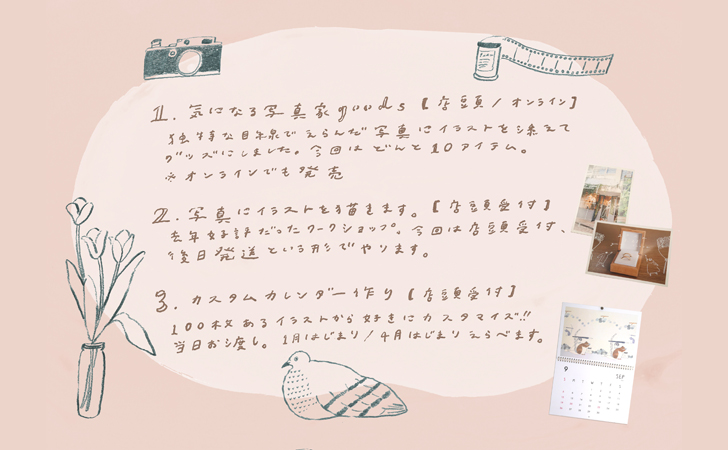 1. 気になる写真家goods【店頭/オンライン】
独特な目線でえらんだ写真にイラストを添えて
グッズにしました。今回はどんと10アイテム。
※オンラインでも発売
2. 写真にイラストを描きます。【店頭受付】
去年好評だったワークショップ。今回は店頭受付、
後日発送という形でやります。
3. カスタムカレンダー作り【店頭受付】
100枚あるイラストから好きにカスタマイズ!!
当日お渡し。1月はじまり/4月はじまりえらべます。
9
SEP